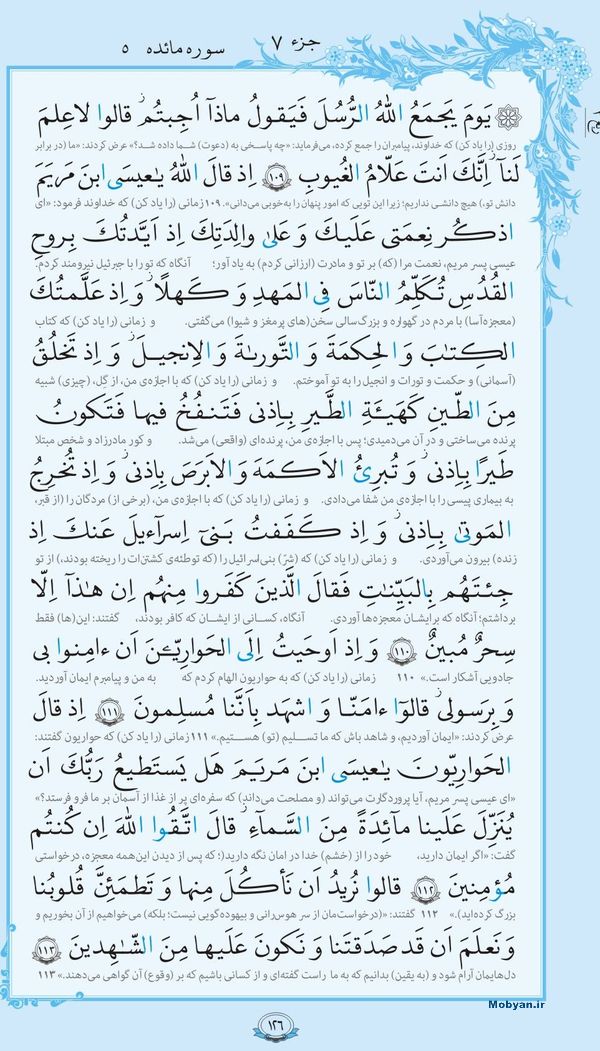 جزء ۷ سوره مائده ۵
يَومَ يَجمَعُ اللّٰهُ الرُّسُلَ فَيَقولُ ماذآ اُجِبتُم قالوا لاعِلمَ
روزی (را یاد کن) که خداوند، پیامبران را جمع کرده، می‌فرماید: «چه پاسخی به (دعوت) شما داده شد؟» عرض کردند: «ما (در برابر
لَنآ اِنَّكَ اَنتَ عَلّامُ الغُيوبِ ۱۰۹ اِذ قالَ اللّٰهُ يٰعيسَى ابنَ مَريَمَ
دانش تو،) هیچ دانشی نداریم؛ زیرا این تویی که امور پنهان را به‌خوبی می‌دانی». ۱۰۹ زمانی (را یاد کن) که خداوند فرمود: «ای
اذكُر نِعمَتى عَلَيكَ وَ عَلىٰ والِدَتِكَ اِذ اَيَّدتُكَ بِروحِ
عیسی پسر مریم، نعمت مرا (که) بر تو و مادرت (ارزانی کردم) به یاد آور؛ آنگاه که تو را با جبرئیل نیرومند کردم.
القُدُسِ تُكَلِّمُ النّاسَ فِى المَهدِ وَ كَهلًا وَ اِذ عَلَّمتُكَ
(معجزه‌آسا) با مردم در گهواره و بزرگ‌سالی سخن(های پرمغز و شیوا) می‌گفتی. و زمانی (را یاد کن) که کتاب
الكِتٰبَ وَ الحِكمَةَ وَ التَّورىٰةَ وَ الاِنجيلَ وَ اِذ تَخلُقُ
(آسمانی) و حکمت و تورات و انجیل را به تو آموختم. و زمانی (را یاد کن) که با اجازه‌ی من، از گِل، (چیزی) شبیه
مِنَ الطّينِ كَهَيئَةِ الطَّيرِ بِاِذنى فَتَنفُخُ فيها فَتَكونُ
پرنده می‌ساختی و در آن می‌دمیدی؛ پس با اجازه‌ی من، پرنده‌ای (واقعی) می‌شد. و کور مادرزاد و شخص مبتلا
طَيرًا بِاِذنى وَ تُبرِئُ الاَكمَهَ وَ الاَبرَصَ بِاِذنى وَ اِذ تُخرِجُ
به بیماری پیسی را با اجازه‌ی من شفا می‌دادی. و زمانی (را یاد کن) که با اجازه‌ی من، (برخی از) مردگان را (از قبر،
المَوتىٰ بِاِذنى وَ اِذ كَفَفتُ بَنىٓ اِسرآءيلَ عَنكَ اِذ
زنده) بیرون می‌آوردی. و زمانی (را یاد کن) که (شرّ) بنی‌اسرائیل را (که توطئه‌ی کشتن‌ات را ریخته بودند،) از تو
جِئتَهُم بِالبَيِّنٰتِ فَقالَ الَّذينَ كَفَروا مِنهُم اِن هٰذآ اِلّا
برداشتم؛ آنگاه که برایشان معجزه‌ها آوردی. آنگاه، کسانی از ایشان که کافر بودند، گفتند: این(ها) فقط
سِحرٌ مُبينٌ ۱۱۰ وَ اِذ اَوحَيتُ اِلَى الحَوارِيّينَ اَن ءامِنوا بى
جادویی آشکار است.» ۱۱۰ زمانی (را یاد کن) که به حواریون الهام کردم که به من و پیامبرم ایمان آوردید.
وَ بِرَسولى قالوٓا ءامَنّا وَ اشهَد بِاَنَّنا مُسلِمونَ ۱۱۱ اِذ قالَ
عرض کردند: «ایمان آوردیم، و شاهد باش که ما تسلیم (تو) هستیم.» ۱۱۱ زمانی (را یاد کن) که حواریون گفتند:
الحَوارِيّونَ يٰعيسَى ابنَ مَريَمَ هَل يَستَطيعُ رَبُّكَ اَن
«ای عیسی پسر مریم، آیا پروردگارت می‌تواند (و مصلحت می‌داند) که سفره‌ای پر از غذا از آسمان بر ما فرو فرستد؟»
يُنَزِّلَ عَلَينا مآئِدَةً مِنَ السَّمآءِ قالَ اتَّقُوا اللّٰهَ اِن كُنتُم
گفت: «اگر ایمان دارید، خود را از (خشم) خدا در امان نگه دارید(؛ که پس از دیدن این‌همه معجزه، درخواستی
مُؤمِنينَ ۱۱۲ قالوا نُريدُ اَن نَأكُلَ مِنها وَ تَطمَئِنَّ قُلوبُنا
بزرگ کرده‌اید).» ۱۱۲ گفتند: «(درخواست‌مان از سر هوس‌رانی و بیهوده‌گویی نیست؛ بلکه) می‌خواهیم از آن بخوریم و
وَ نَعلَمَ اَن قَد صَدَقتَنا وَ نَكونَ عَلَيها مِنَ الشّٰهِدينَ ۱۱۳
دل‌هایمان آرام شود و (به یقین) بدانیم که به ما راست گفته‌ای و از کسانی باشیم که بر (وقوع) آن گواهی می‌دهند.» ۱۱۳
Mobyan.ir
۱۲۶